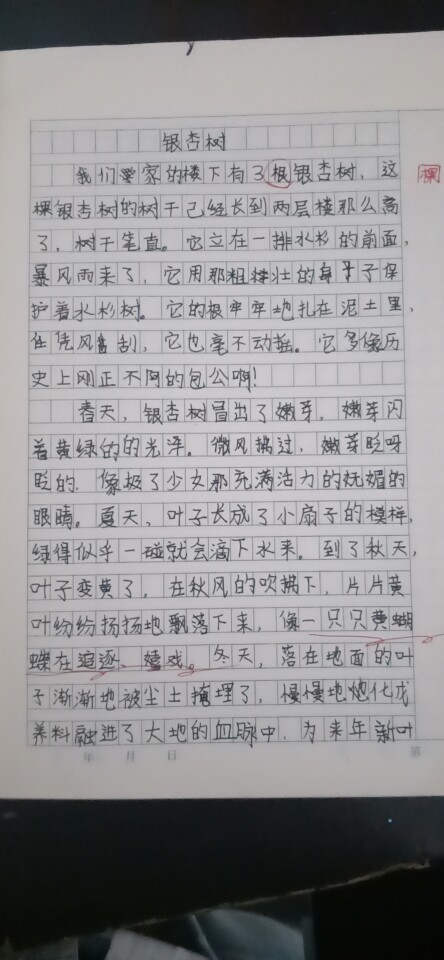 银杏树
我们家的楼下有了根银杏树，这
棵
棵银杏树的树干已经长到两层楼那么高
了，树干笔直。它立在一排水杉的前面，
暴风雨来了，它用那粗壮的身子保
护着水杉树。它的根牢牢地扎在泥土里，
任凭风刮，它也毫不动摇。它多像历
史上刚正不阿的包公啊！
春天，银杏树冒出了嫩芽，嫩芽闪
着黄绿的的光泽。微风拂过，嫩芽眨呀
眨的，像极了少女那充满活力的妩媚的
眼睛。夏天，叶子长成了小扇子的模样，
绿得似乎一碰就会滴下水来。到了秋天，
叶子变黄了，在秋风的吹拂下，片片黄
叶纷纷扬扬地飘落下来，像一只只黄蝴
蝶在追逐、嬉戏。冬天，落在地面的叶
子渐渐地被尘土掩埋了，慢慢地化成
养料融进了大地的血脉中，为来年新叶
年 月 日
第